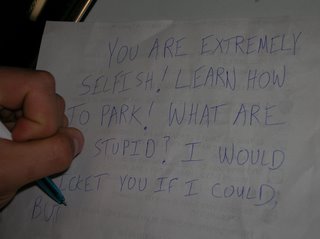 YOU ARE EXTREMELY
SELFISH! LEARN HOW
TO PARK! WHAT ARE
STUPID? I WOULD
CKET YOU IF I COULD,
BUT